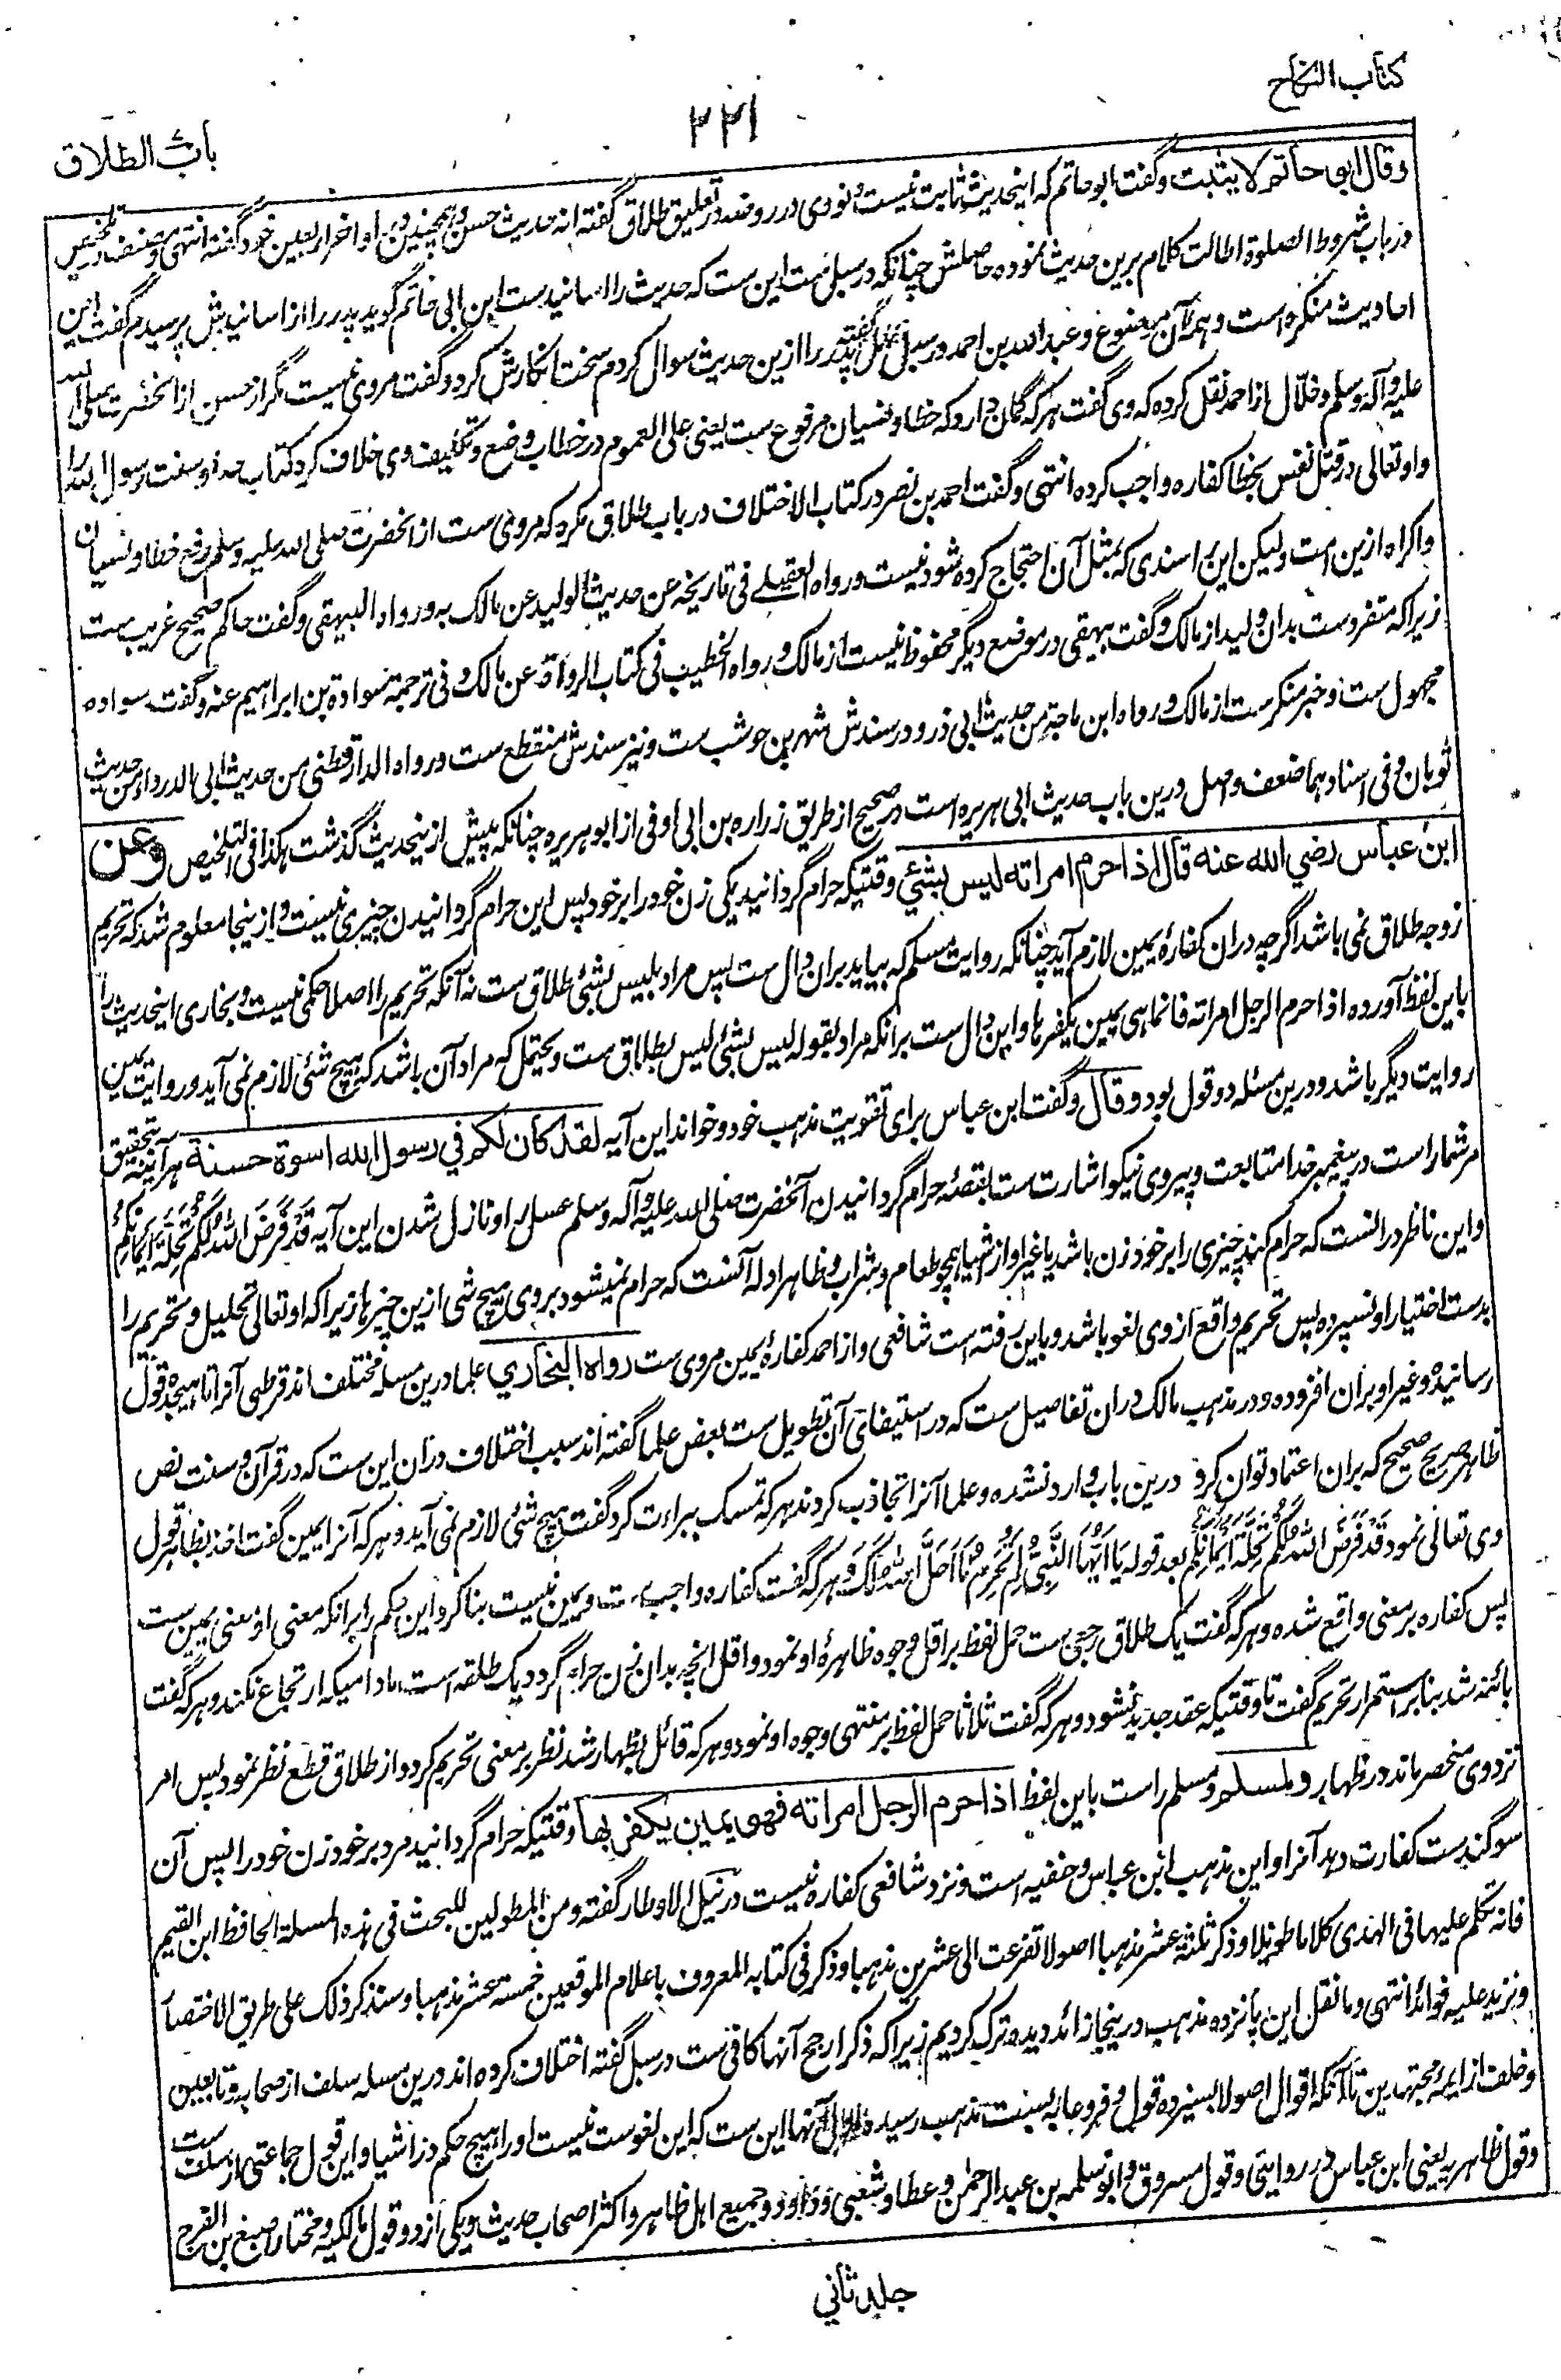 کتاب النکاح
۲۲۱
باب الطلاق
وقال ابو حاتم لا یثبت وگفت ابو حاتم که اینحدیث ثابت نیست و نووی در روضه در تعلیق طلاق گفته انه حدیث حسن وهمچنین در اواخر اربعین خود گفته انتهی ومصنف در تلخیص
در باب شروط الصلوة اطالت کلام برین حدیث نموده حاصلش چنانکه در سبل ست این ست که حدیث را اسانیدست ابن ابی حاتم گوید پدر را از اسانیدش پرسیدم گفت این
احادیث منکره است و همه آن موضوع وعبدالله بن احمد در علل گفته پدر را ازین حدیث سوال کردم سخت انکارش کرد وگفت مروی نیست مگر از حسن از آنحضرت صلی الله
علیه وآله وسلم وخلّال از احمد نقل کرده که وی گفت هرکه گمان دارد که خطا ونسیان مرفوع ست یعنی علی العموم در خطاب وضع وتکلیف وی خلاف کرد کتاب خدا وسنت رسول الله را
واو تعالی در قتل نفس بخطا کفاره واجب کرده انتهی وگفت احمد بن نصر در کتاب الاختلاف در باب طلاق مکره که مروی ست از آنحضرت صلی الله علیه وسلم رفع خطا ونسیان
واکراه ازین امت ولیکن این را سندی که بمثل آن احتجاج کرده شود نیست ورواه العقیلے فی تاریخه عن حدیث الولید عن مالک به ورواه البیهقی وگفت حاکم صحیح غریب ست
زیراکه متفردست بدان ولید از مالک وگفت بیهقی در موضع دیگر محفوظ نیست از مالک ورواه الخطیب فی کتاب الرواة عن مالک وفی ترجمة سوادة بن ابراهیم عنه وگفت سواده
مجهول ست وخبر منکرست از مالک ورواه ابن ماجة من حدیث ابی ذر ودر سندش شهر بن حوشب ست ونیز سندش منقطع ست ورواه الدارقطنی من حدیث ابی الدرداء ومن حدیث
ثوبان وفی اسنادهما ضعف واصل درین باب حدیث ابی هریره است در صحیح از طریق زراره بن ابی اوفی از ابو هریره چنانکه پیش ازینحدیث گذشت هکذا فی التلخیص وعن
ابن عباس رضي الله عنه قال اذا حرم امراته لیس بشئ وقتیکه حرام گردانید یکی زن خود را بر خود پس این حرام گردانیدن چیزی نیست وازینجا معلوم شد که تحریم
زوجه طلاق نمی باشد اگرچه دران کفارهٔ یمین لازم آید چنانکه روایت مسلم که بیاید بران دال ست پس مراد بلیس بشئ طلاق ست نه آنکه تحریم را اصلا حکمی نیست وبخاری اینحدیث را
باین لفظ آورده اذا حرم الرجل امراته فانما هی یمین یکفرها واین دال ست برانکه مراد بقوله لیس بشئ لیس بطلاق ست ویحتمل که مراد آن باشد که هیچ شئ لازم نمی آید وروایت یمین
روایت دیگر باشد ودرین مسئله دو قول بود وقال وگفت ابن عباس برای تقویت مذهب خود وخواند این آیه لقد کان لکم في رسول الله اسوة حسنة هرآئینه بتحقیق
مر شما راست در پیغمبر خدا متابعت وپیروی نیکو اشارت ست بقصهٔ حرام گردانیدن آنحضرت صلی الله علیه وآله وسلم عسل را ونازل شدن این آیه قَدْ فَرَضَ اللهُ لَکُمْ تَحِلَّةَ اَیْمَانِکُمْ
واین ناظر درانست که حرام کند چیزی را بر خود زن باشد یا غیر او از اشیا همچو طعام وشراب وظاهر ادله آنست که حرام نمیشود بروی هیچ شی ازین چیزها زیراکه او تعالی تحلیل وتحریم را
بدست اختیار او نسپرده پس تحریم واقع از وی لغو باشد وباین رفته است شافعی واز احمد کفارهٔ یمین مروی ست رواه البخاري علما درین مسئله مختلف اند قرطبی آنرا تا هیجده قول
رسانیده وغیر او بران افزوده ودر مذهب مالک دران تفاصیل ست که در استیفای آن تطویل ست بعض علما گفته اند سبب اختلاف دران این ست که در قرآن وسنت نص
ظاهر صریح صحیح که بران اعتماد توان کرد درین باب وارد نشده وعلما آنرا تجاذب کردند هرکه تمسک ببراءت کرد گفت هیچ شئ لازم نمی آید وهرکه آنرا یمین گفت اخذ بظاهر قول
وی تعالی نمود قَدْ فَرَضَ اللهُ لَکُمْ تَحِلَّةَ اَیْمَانِکُمْ بعد قوله یَا اَیُّهَا النَّبِیُّ لِمَ تُحَرِّمُ مَا اَحَلَّ اللهُ لَکَ وهرکه گفت کفاره واجب ست ویمین نیست بنا کرد این حکم را برانکه معنی او معنی یمین ست
پس کفاره بر معنی واقع شده وهرکه گفت یک طلاق رجعی ست حمل لفظ بر اقل وجوه ظاهرهٔ او نمود واقل آنچه بدان زن حرام گردد یک طلقه است مادامیکه ارتجاع نکند وهرکه گفت
بائنه شد بنا بر استمرار تحریم گفت تا وقتیکه عقد جدید نشود وهرکه گفت ثلاثا حمل لفظ بر منتهی وجوه او نمود وهرکه قائل بظهار شد نظر بر معنی تحریم کرد واز طلاق قطع نظر نمود پس امر
نزد وی منحصر ماند در ظهار ولمسلم ومسلم راست باین لفظ اذا حرم الرجل امراته فهو یمین یکفر بها وقتیکه حرام گردانید مرد بر خود زن خود را پس آن
سوگندست کفارت دهد آنرا واین مذهب ابن عباس وحنفیه است ونزد شافعی کفاره نیست در نیل الاوطار گفته ومن المطولین للبحث فی هذه المسئلة الحافظ ابن القیم
فانه تکلم علیها فی الهدی کلاما طویلا وذکر ثلثة عشر مذهبا اصولا تفرعت الی عشرین مذهبا وذکر فی کتابه المعروف باعلام الموقعین خمسة عشر مذهبا وسنذکر ذلک علی طریق الاختصار
ونزید علیه فوائد انتهی وما نقل این پانزده مذهب درینجا زائد دیده ترک کردیم زیراکه ذکر ارجح آنها کافی ست در سبل گفته اختلاف کرده اند درین مسئله سلف از صحابه وتابعین
وخلف از ایمهٔ مجتهدین تا آنکه اقوال اصولا بسیزده قول وفروعا به بیست مذهب رسیده اول آنها این ست که این لغوست نیست او را هیچ حکم در اشیا واین قول جماعتی از سلف ست
وقول ظاهریه یعنی ابن عباس در روایتی وقول مسروق وابو سلمه بن عبدالرحمن وعطا وشعبی وداود وجمیع اهل ظاهر واکثر اصحاب حدیث ویکی از دو قول مالکیه ومختار اصبغ بن الفرج
جلد ثاني